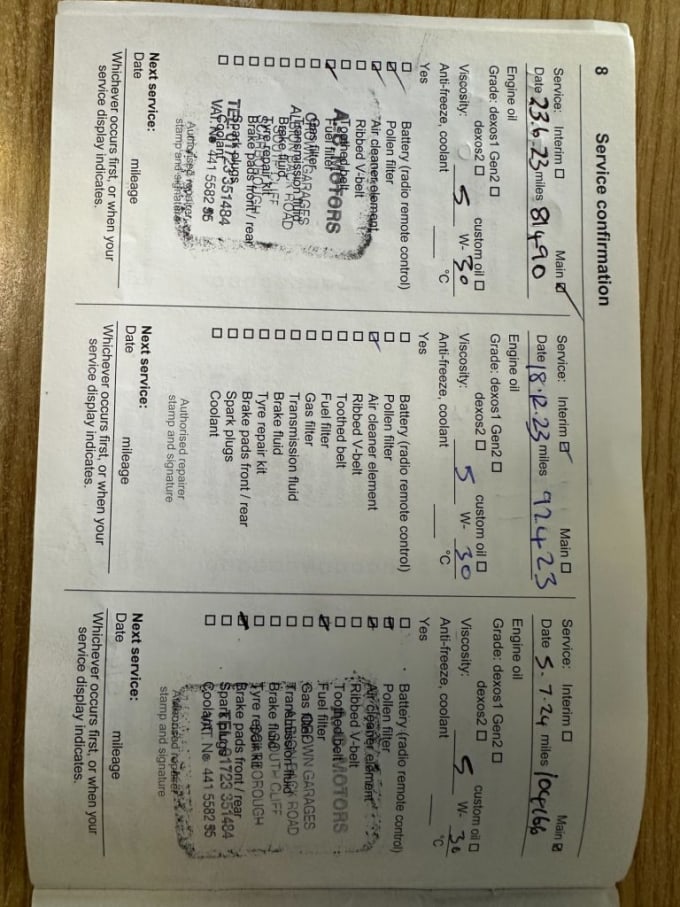 8 Service confirmation
Service: Interim ☐ Main ☑
Date 23.6.23 miles 81490
Engine oil
Grade: dexos1 Gen2 ☐
dexos2 ☐ custom oil ☐
Viscosity: 5 W- 30
Anti-freeze, coolant °C
Yes
☐ Battery (radio remote control)
☑ Pollen filter
☑ Air cleaner element
☐ Ribbed V-belt
☐ Toothed belt
☑ Fuel filter
☐ Gas filter
☐ Transmission fluid
☐ Brake fluid
☐ Tyre repair kit
☐ Brake pads front / rear
☐ Spark plugs
☐ Coolant
MOTORS
CROWN GARAGES
BACK ROAD
SOUTH CLIFF
TEL: 01723 351484
VAT. No 441 5582 95
Authorised repairer
stamp and signature
Next service:
Date mileage
Whichever occurs first, or when your
service display indicates.
Service: Interim ☑ Main ☐
Date 18.12.23 miles 92423
Engine oil
Grade: dexos1 Gen2 ☐
dexos2 ☐ custom oil ☐
Viscosity: 5 W- 30
Anti-freeze, coolant °C
Yes
☐ Battery (radio remote control)
☐ Pollen filter
☑ Air cleaner element
☐ Ribbed V-belt
☐ Toothed belt
☐ Fuel filter
☐ Gas filter
☐ Transmission fluid
☐ Brake fluid
☐ Tyre repair kit
☐ Brake pads front / rear
☐ Spark plugs
☐ Coolant
Authorised repairer
stamp and signature
Next service:
Date mileage
Whichever occurs first, or when your
service display indicates.
Service: Interim ☐ Main ☑
Date 5.7.24 miles 104166
Engine oil
Grade: dexos1 Gen2 ☐
dexos2 ☐ custom oil ☐
Viscosity: 5 W- 30
Anti-freeze, coolant °C
Yes
☐ Battery (radio remote control)
☑ Pollen filter
☑ Air cleaner element
☐ Ribbed V-belt
☐ Toothed belt
☑ Fuel filter
☐ Gas filter
☐ Transmission fluid
☐ Brake fluid
☐ Tyre repair kit
☑ Brake pads front / rear
☐ Spark plugs
☐ Coolant
MOTORS
CROWN GARAGES
BACK ROAD
SOUTH CLIFF
SCARBOROUGH
TEL: 01723 351484
VAT. No 441 5582 95
Authorised repairer
stamp and signature
Next service:
Date mileage
Whichever occurs first, or when your
service display indicates.